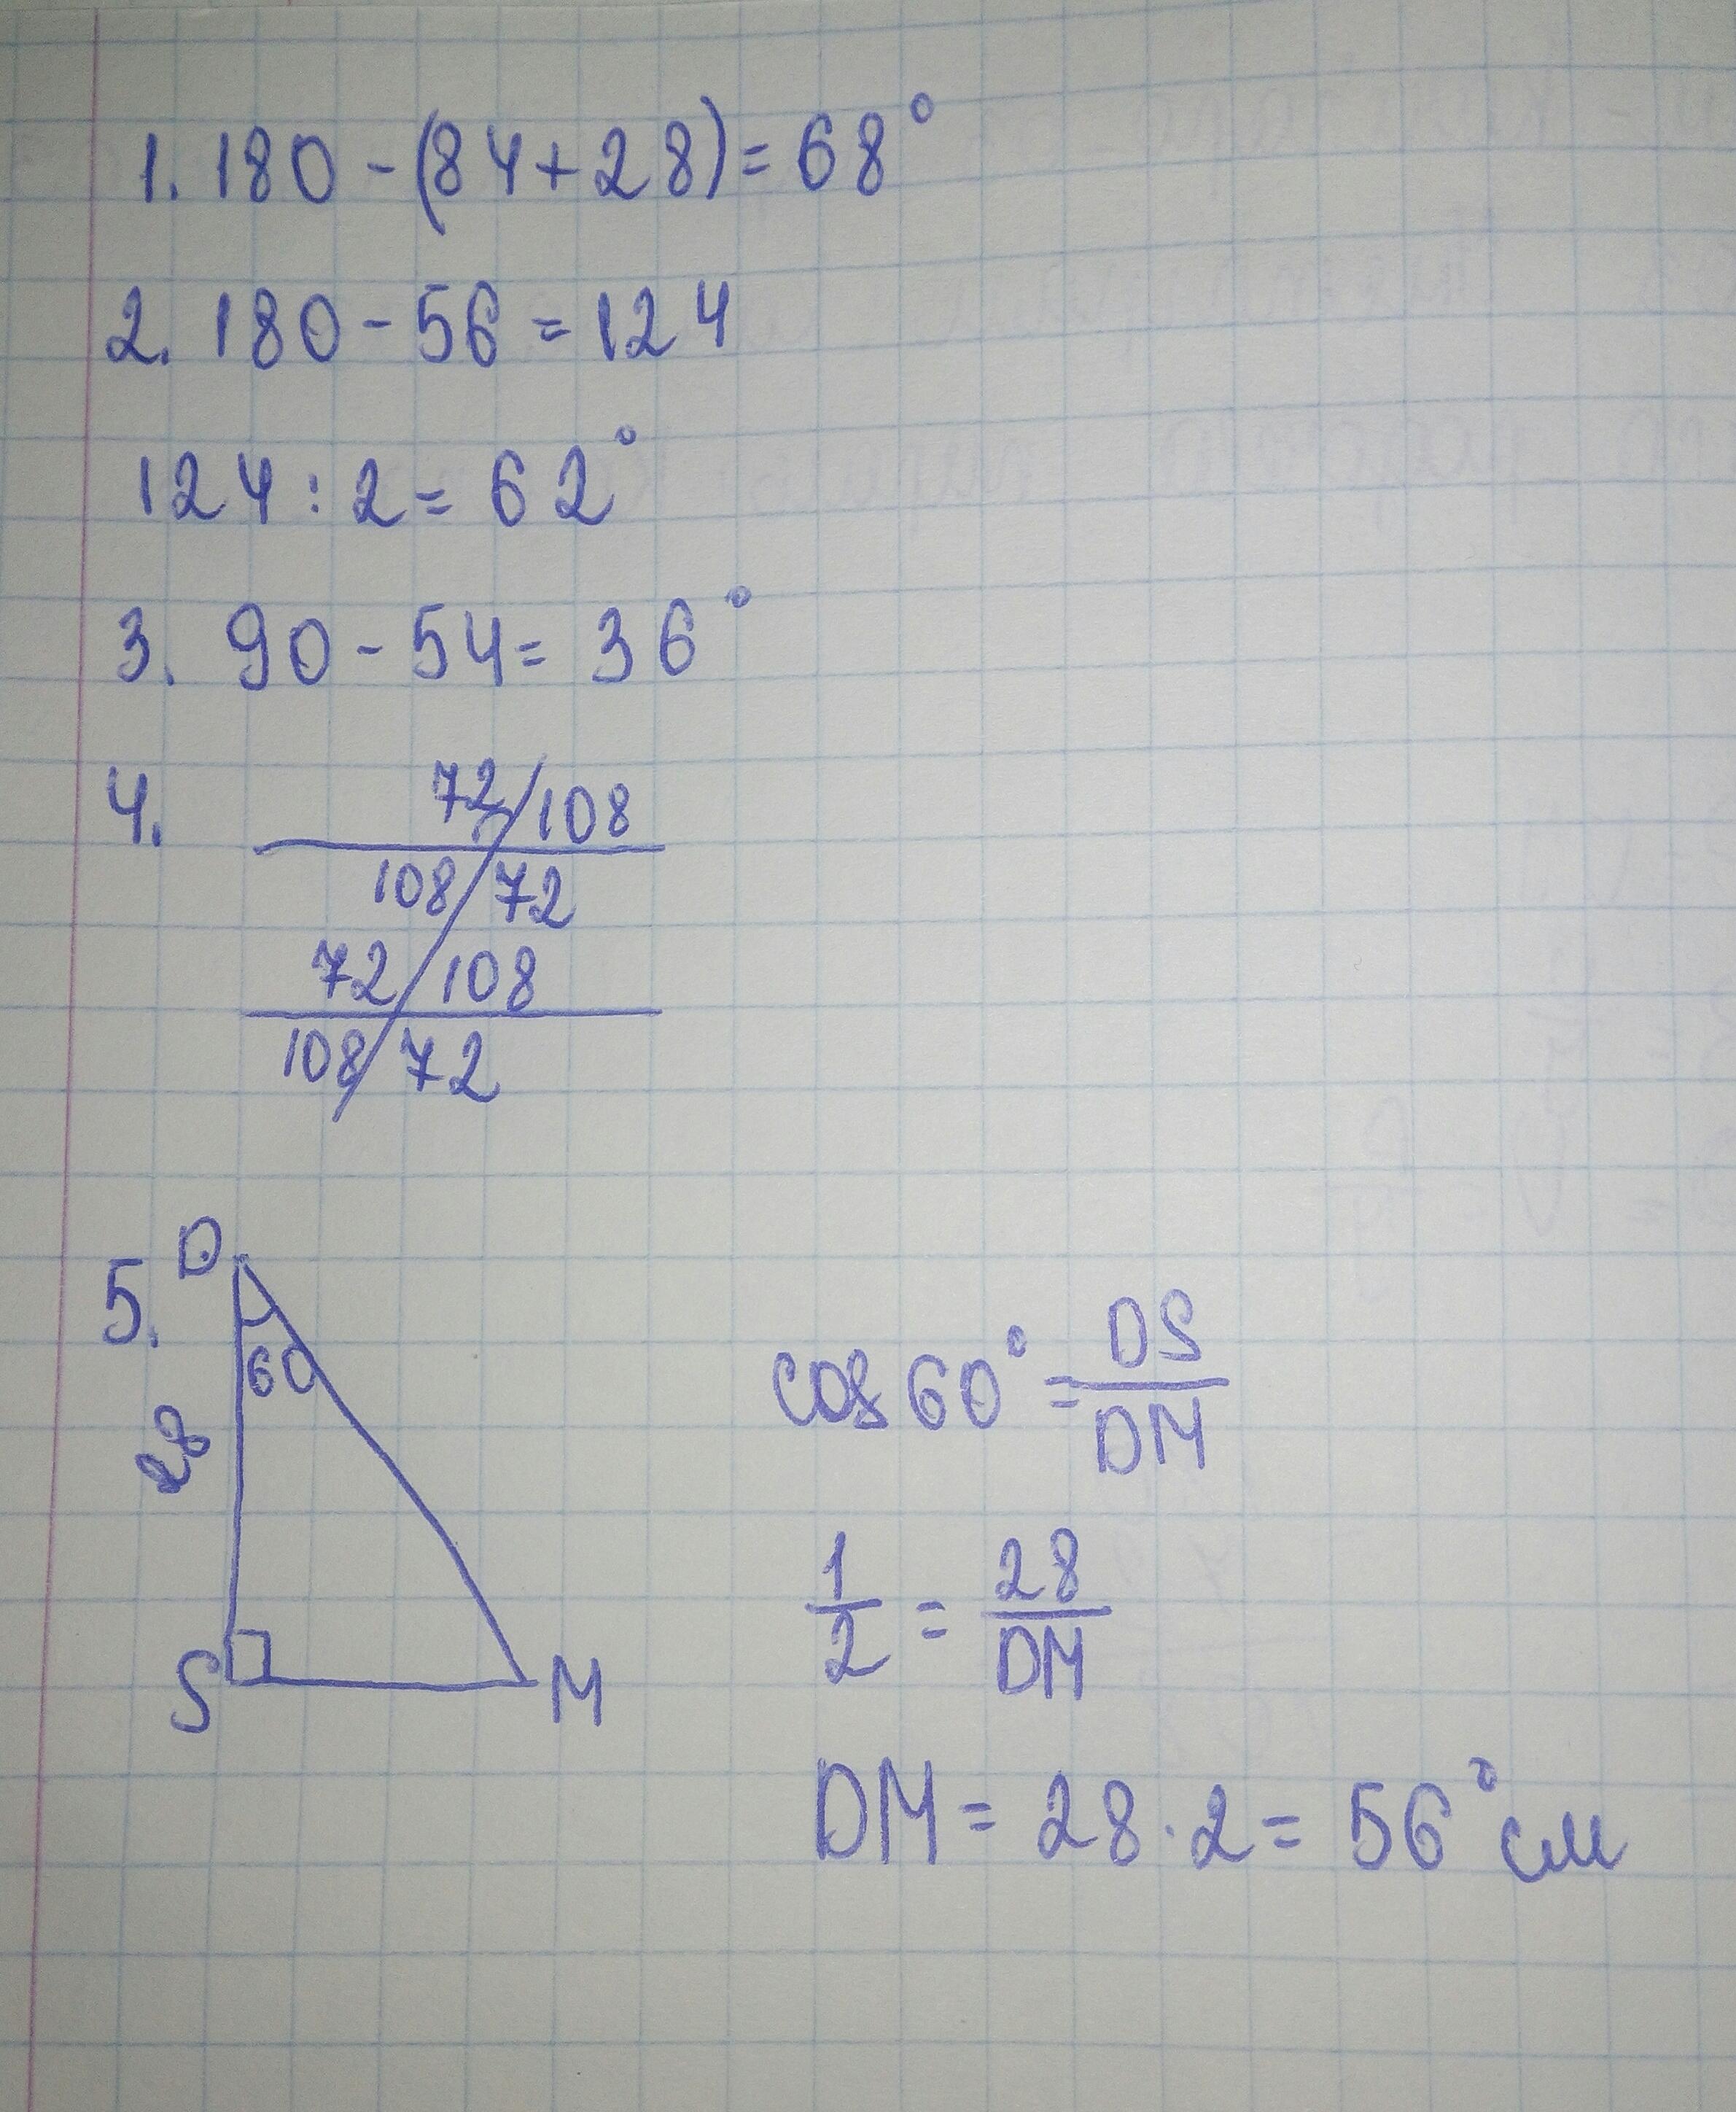 1. 180 - (84 + 28) = 68°
2. 180 - 56 = 124
124 : 2 = 62°
3. 90 - 54 = 36°
4. 72 / 108
108 / 72
72 / 108
108 / 72
5. D
60
28
S M
cos 60° = DS / DM
1/2 = 28 / DM
DM = 28 · 2 = 56° см